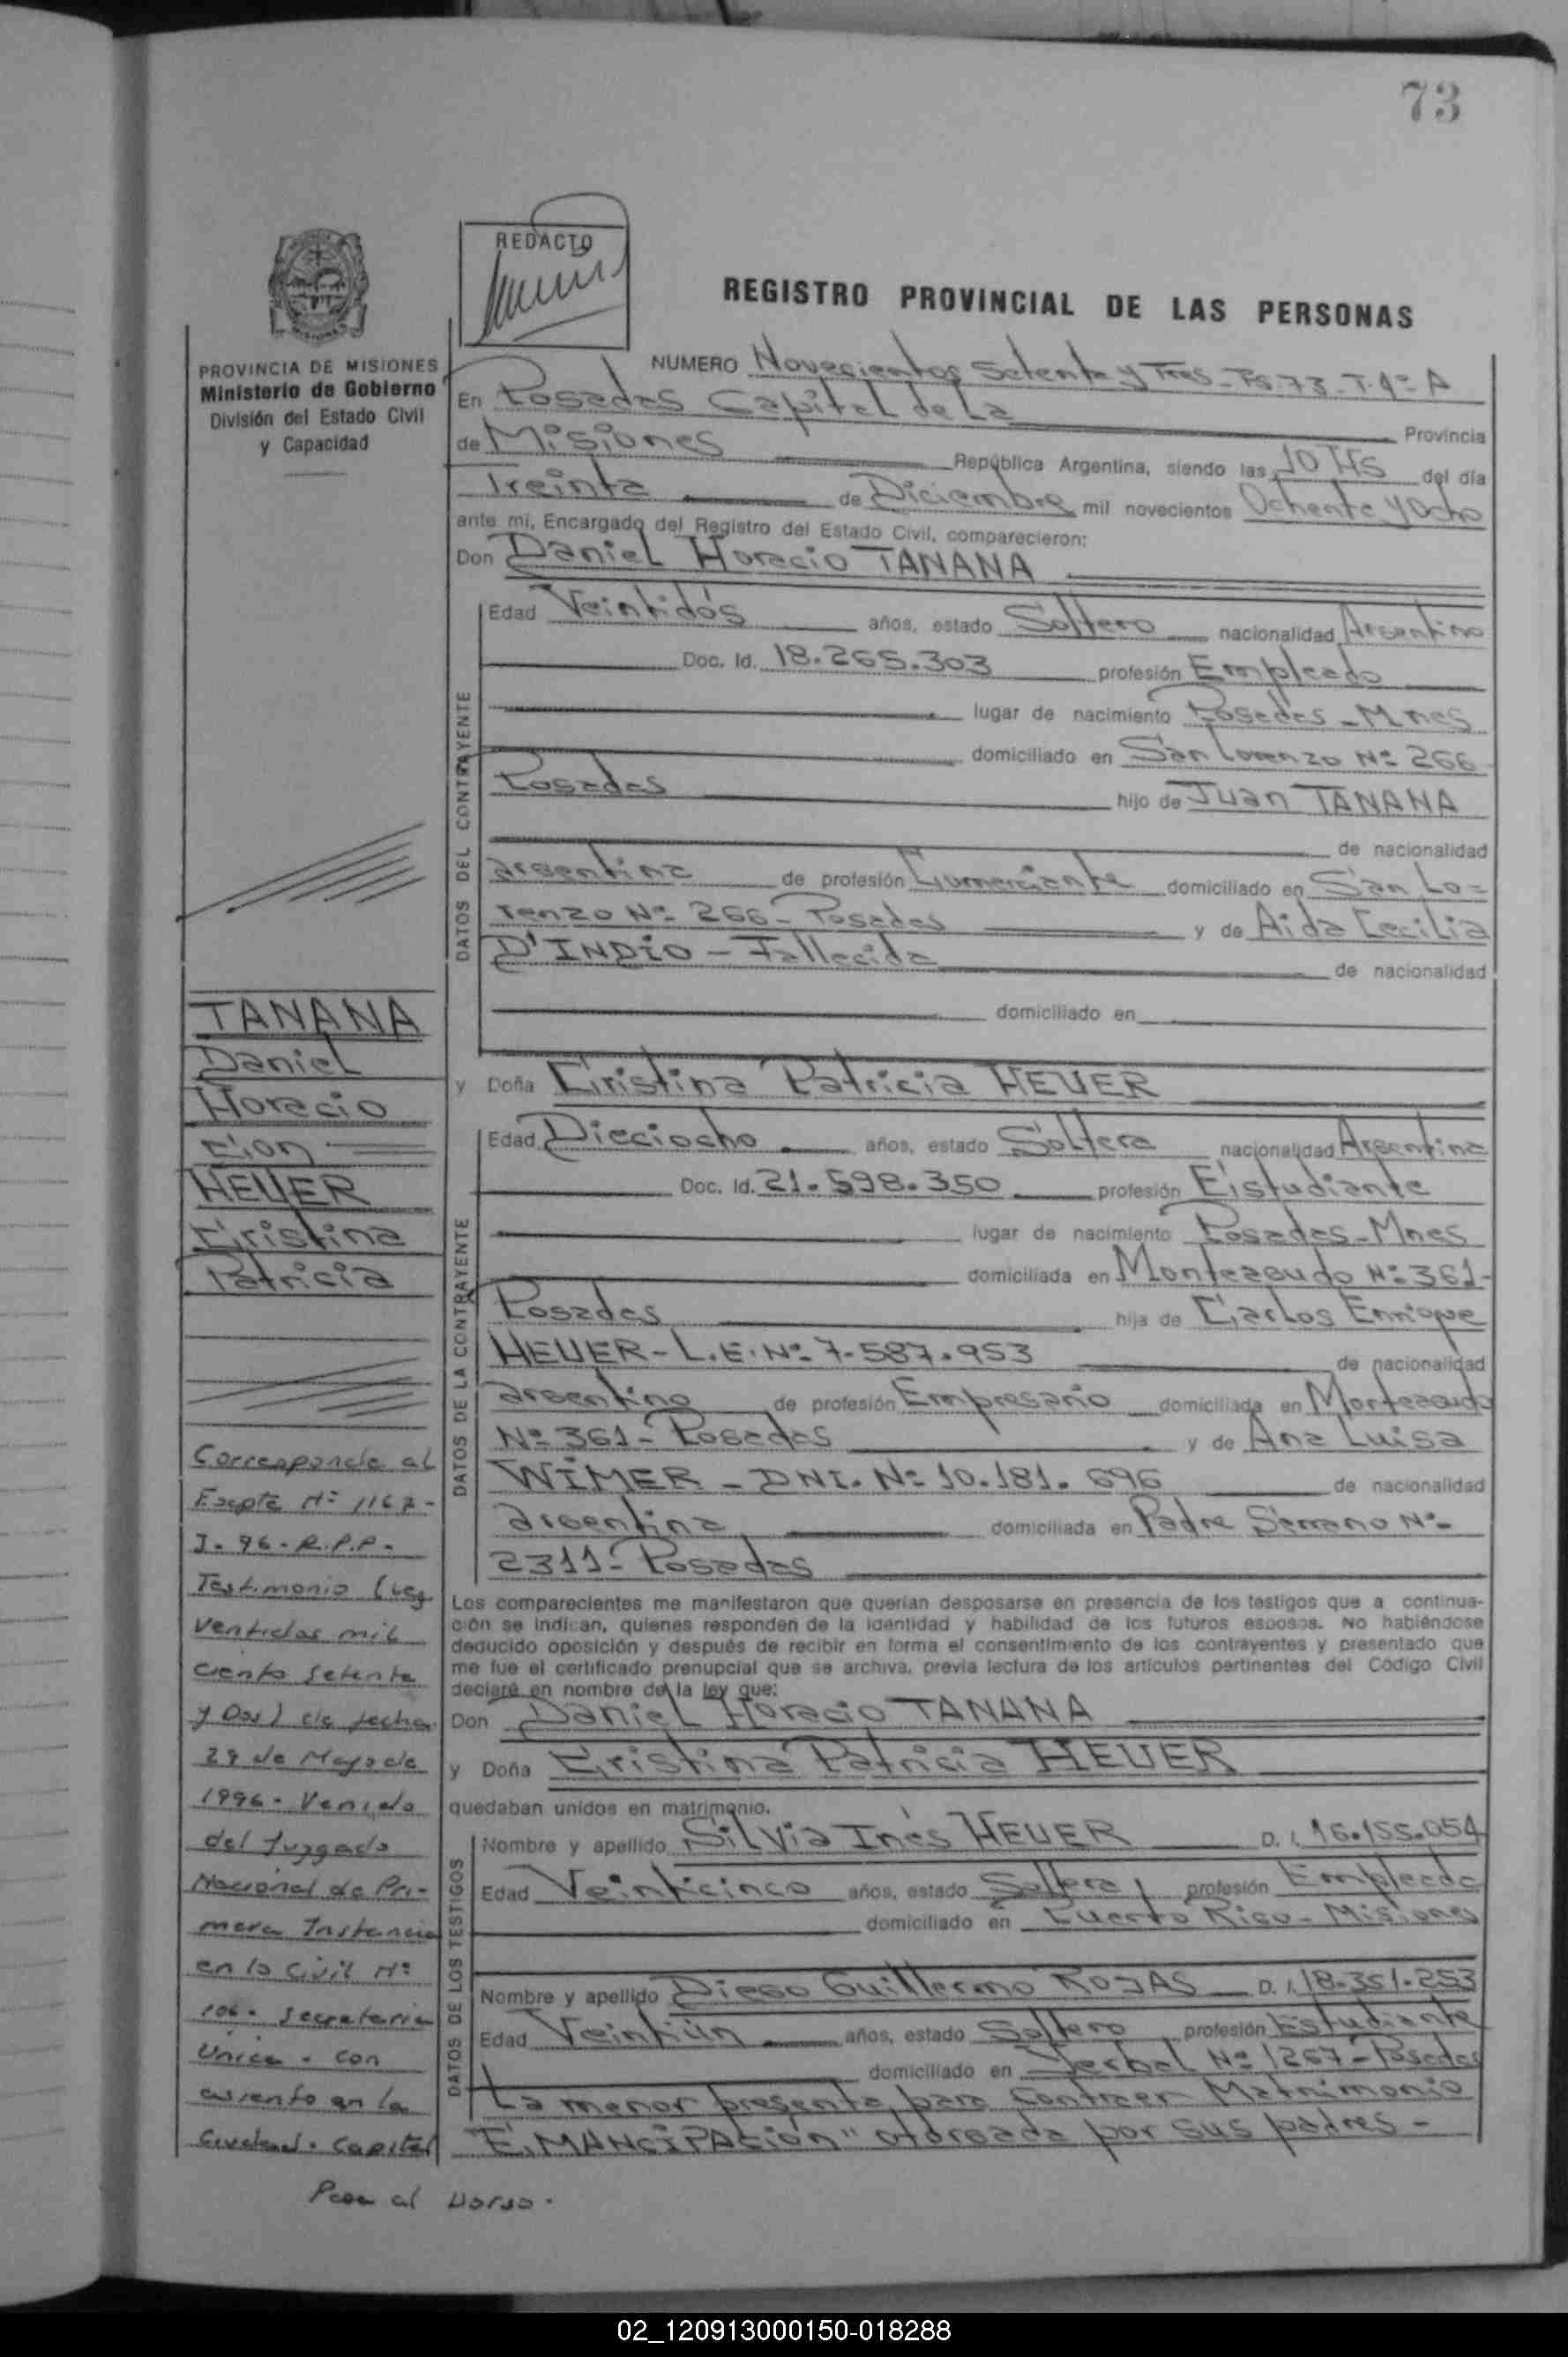 73
REDACTO
REGISTRO PROVINCIAL DE LAS PERSONAS
PROVINCIA DE MISIONES
Ministerio de Gobierno
División del Estado Civil
y Capacidad
NUMERO Novecientos Setenta y Tres - Fs 73 - T. 4º- A
En Posadas Capital de La Provincia
de Misiones República Argentina, siendo las 10 Hs del día
Treinta de Diciembre mil novecientos Ochenta y Ocho
ante mi, Encargado del Registro del Estado Civil, comparecieron:
Don Daniel Horacio TANANA
DATOS DEL CONTRAYENTE
Edad Veintidós años, estado Soltero nacionalidad Argentino
Doc. Id. 18.265.303 profesión Empleado
lugar de nacimiento Posadas - Mnes
domiciliado en San Lorenzo Nº 266
Posadas hijo de Juan TANANA
de nacionalidad
argentina de profesión Comerciante domiciliado en San Lo=
renzo Nº 266 - Posadas y de Aida Cecilia
D'INDIO - Fallecida de nacionalidad
domiciliado en
y Doña Cristina Patricia HEUER
DATOS DE LA CONTRAYENTE
Edad Dieciocho años, estado Soltera nacionalidad Argentina
Doc. Id. 21.598.350 profesión Estudiante
lugar de nacimiento Posadas - Mnes
domiciliada en Monteagudo Nº 361-
Posadas hija de Carlos Enrique
HEUER - L.E. Nº 7.587.953 de nacionalidad
argentino de profesión Empresario domiciliada en Monteagudo
Nº 361 - Posadas y de Ana Luisa
WIMER - DNI. Nº 10.181.696 de nacionalidad
argentina domiciliada en Padre Serrano Nº-
2311 - Posadas
Los comparecientes me manifestaron que querían desposarse en presencia de los testigos que a continua-
ción se indican, quienes responden de la identidad y habilidad de los futuros esposos. No habiéndose
deducido oposición y después de recibir en forma el consentimiento de los contrayentes y presentado que
me fue el certificado prenupcial que se archiva, previa lectura de los artículos pertinentes del Código Civil
declaré en nombre de la ley que:
Don Daniel Horacio TANANA
y Doña Cristina Patricia HEUER
quedaban unidos en matrimonio.
DATOS DE LOS TESTIGOS
Nombre y apellido Silvia Inés HEUER D. I. 16.155.054
Edad Veinticinco años, estado Soltera profesión Empleada
domiciliado en Puerto Rico - Misiones
Nombre y apellido Diego Guillermo ROJAS D. I. 18.351.253
Edad Veintiún años, estado Soltero profesión Estudiante
domiciliado en Yerbal Nº 1267 - Posadas
La menor presenta para contraer Matrimonio
"EMANCIPACIÓN" otorgada por sus padres -
TANANA
Daniel
Horacio
Con
HEUER
Cristina
Patricia
Corresponde al
Expte Nº 1167-
J- 96- R.P.P-
Testimonio (Leg
Ventidos mil
ciento setenta
y Dos) de fecha
29 de Mayo de
1996- Venido
del Juzgado
Nacional de Pri-
mera Instancia
en lo Civil Nº
106- Secretaria
Unica - con
asiento en la
Ciudad - Capital
Pasa al Dorso -
02_120913000150-018288